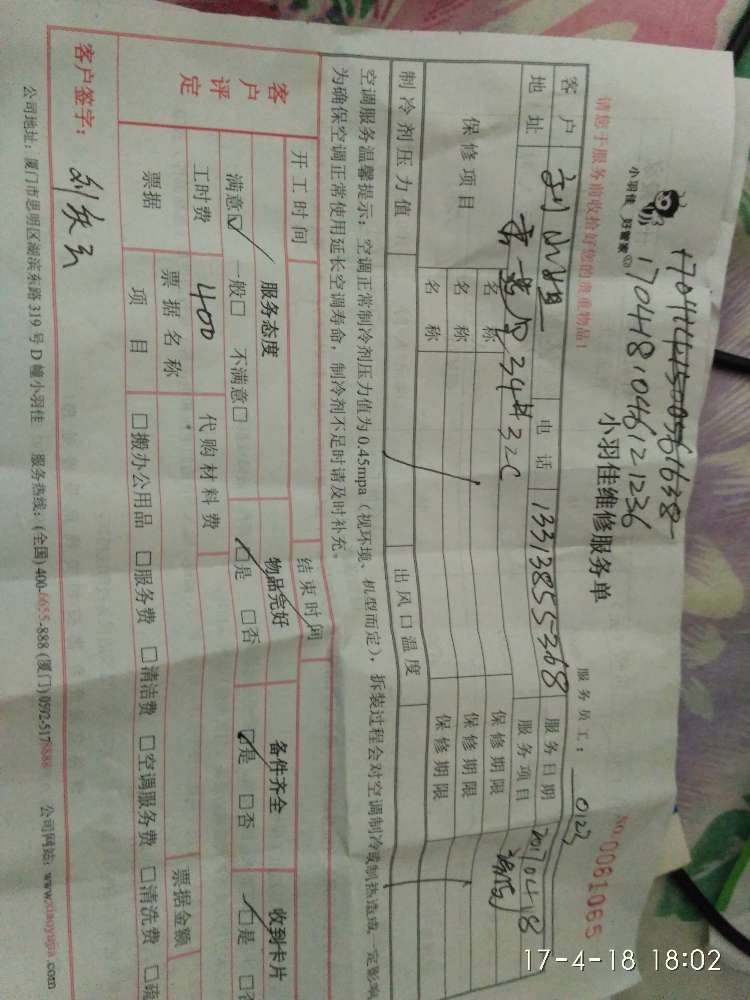 17041415005961638
1704481046121236
小羽佳 好管家
小羽佳维修服务单
服务员工： 0123
NO.0061065
请您于服务前收拾好您的贵重物品！
客户 刘小姐 电话 13313855368 服务日期 20170418
地址 34# 32C 服务项目
保修项目 名称 保修期限
名称 保修期限
名称 保修期限
制冷剂压力值 出风口温度
空调服务温馨提示：空调正常制冷剂压力值为0.45mpa（视环境、机型而定），拆装过程会对空调制冷或制热造成一定影响
为确保空调正常使用延长空调寿命，制冷剂不足时请及时补充。
开工时间 结束时间
客户评定 服务态度 物品完好 备件齐全 收到卡片
满意☑ 一般□ 不满意□ ☑是 □否 ☑是 □否 ☑是
工时费 400 代购材料费
票据 票据名称 票据金额
项目 □搬办公用品 □服务费 □清洁费 □空调服务费 □清洗费
客户签字：
公司地址：厦门市思明区湖滨东路319号D幢小羽佳 服务热线：(全国)400-6055-888 (厦门)0592-5178888 公司网站：www.xiaoyujia.com
17-4-18 18:02